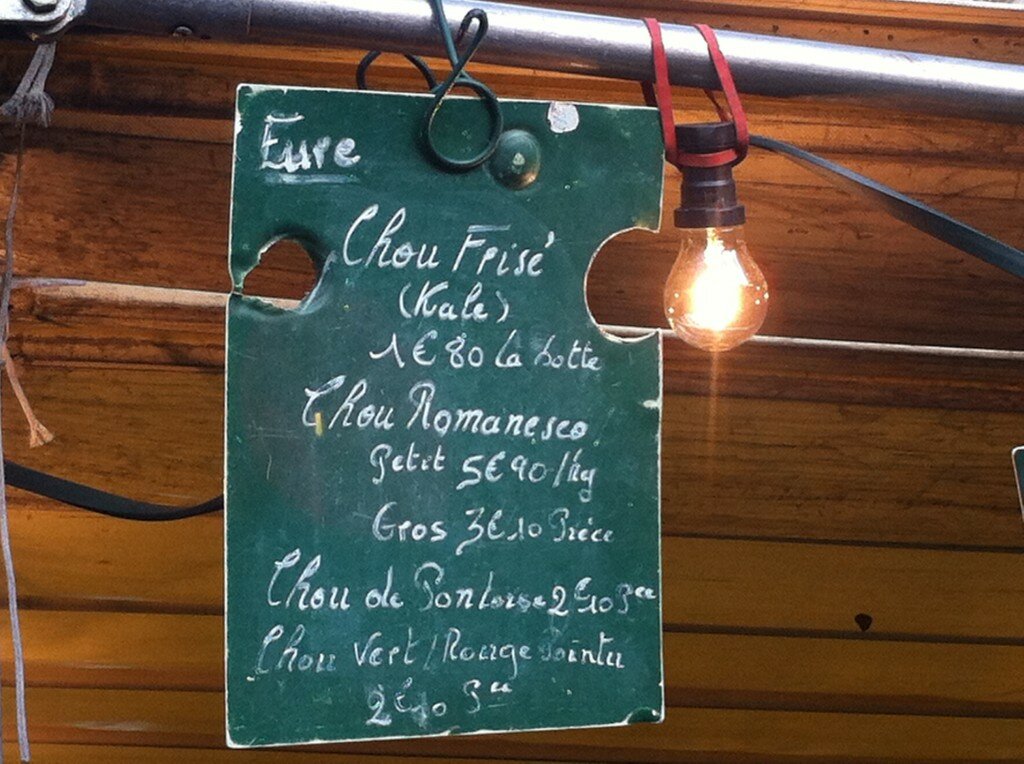 Eure
Chou Frisé
(Kale)
1€80 La botte
Chou Romanesco
Petit 5€90/kg
Gros 3€10 Pièce
Chou de Pontoise 2€10 Pce
Chou Vert/Rouge Pointu
2€10 Pce